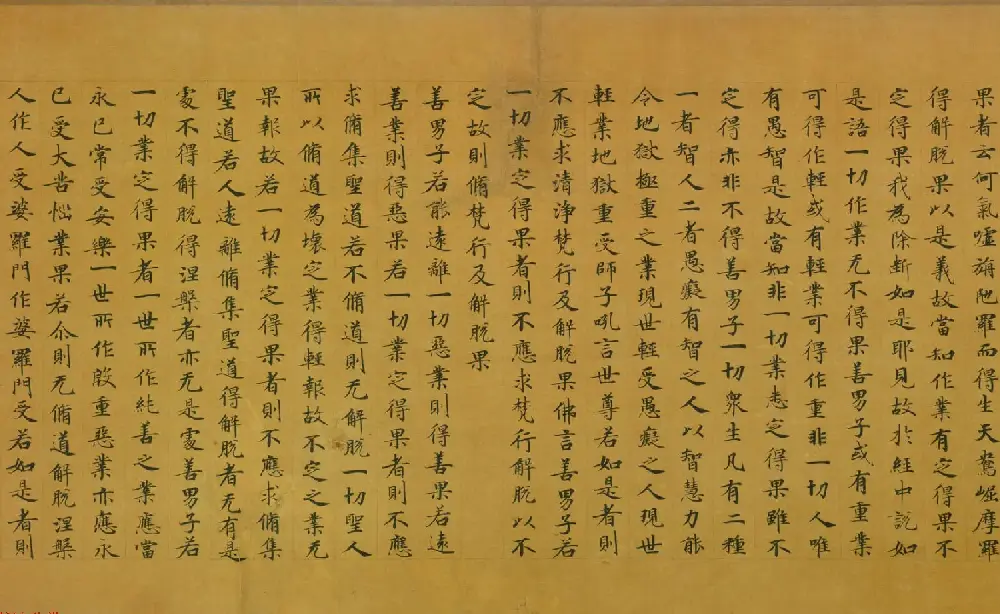 果者云何氣噓旃陁羅而得生天鴦崛摩羅
得解脫果以是義故當知作業有定得果不
定得果我為除斷如是耶見故於經中說如
是語一切作業无不得果善男子或有重業
可得作輕或有輕業可得作重非一切人唯
有愚智是故當知非一切業悉定得果雖不
定得亦非不得善男子一切衆生凡有二種
一者智人二者愚癡有智之人以智慧力能
令地獄極重之業現世輕受愚癡之人現世
輕業地獄重受師子吼言世尊若如是者則
不應求清淨梵行及解脫果佛言善男子若
一切業定得果者則不應求梵行解脫以不
定故則脩梵行及解脫果
善男子若能遠離一切惡業則得善果若遠
善業則得惡果若一切業定得果者則不應
求脩集聖道若不脩道則无解脫一切聖人
所以脩道為壞定業得輕報故不定之業无
果報故若一切業定得果者則不應求脩集
聖道若人遠離脩集聖道得解脫者无有是
處不得解脫得涅槃者亦无是處善男子若
一切業定得果者一世所作純善之業應當
永已常受安樂一世所作殺重惡業亦應永
已受大苦惱業果若尒則无脩道解脫涅槃
人作人受婆羅門作婆羅門受若如是者則